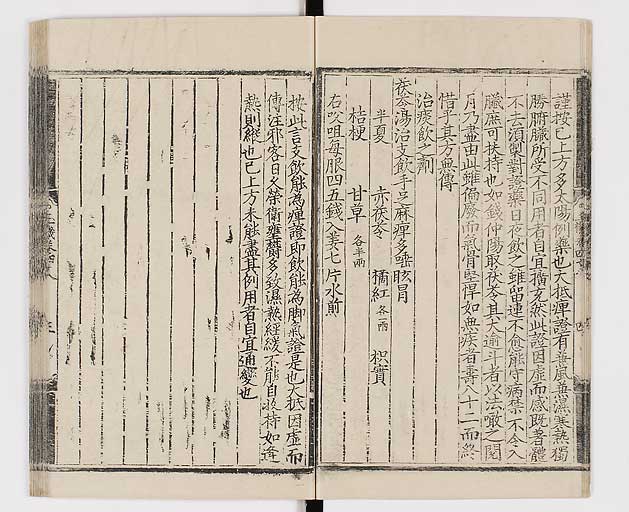 謹按已上方多太陽例藥也大抵痺證有兼風兼濕寒熱獨
勝腑臟所受不同用者自宜擴充然此證因虛而感旣著體
不去須製對證藥日夜飲之雖留連不愈能守病禁不令入
臟庶可扶持也如錢仲陽取茯苓其大逾斗者以法噉之閱
月乃盡由此雖偏廢而氣骨堅悍如無疾者壽八十二而終
惜乎其方無傳
治痰飲之劑
茯苓湯治支飲手足麻痺多睡眩冒
半夏 赤茯苓 橘紅各兩 枳實
桔梗 甘草各半兩
右㕮咀每服四五錢入姜七片水煎
按此言支飲能為痺證即飲能為脚氣證是也大抵因虛而
傳注邪客日久榮衛壅鬱多致濕熱經緩不能自收持如逢
熱則縱也已上方未能盡其例用者自宜通變也